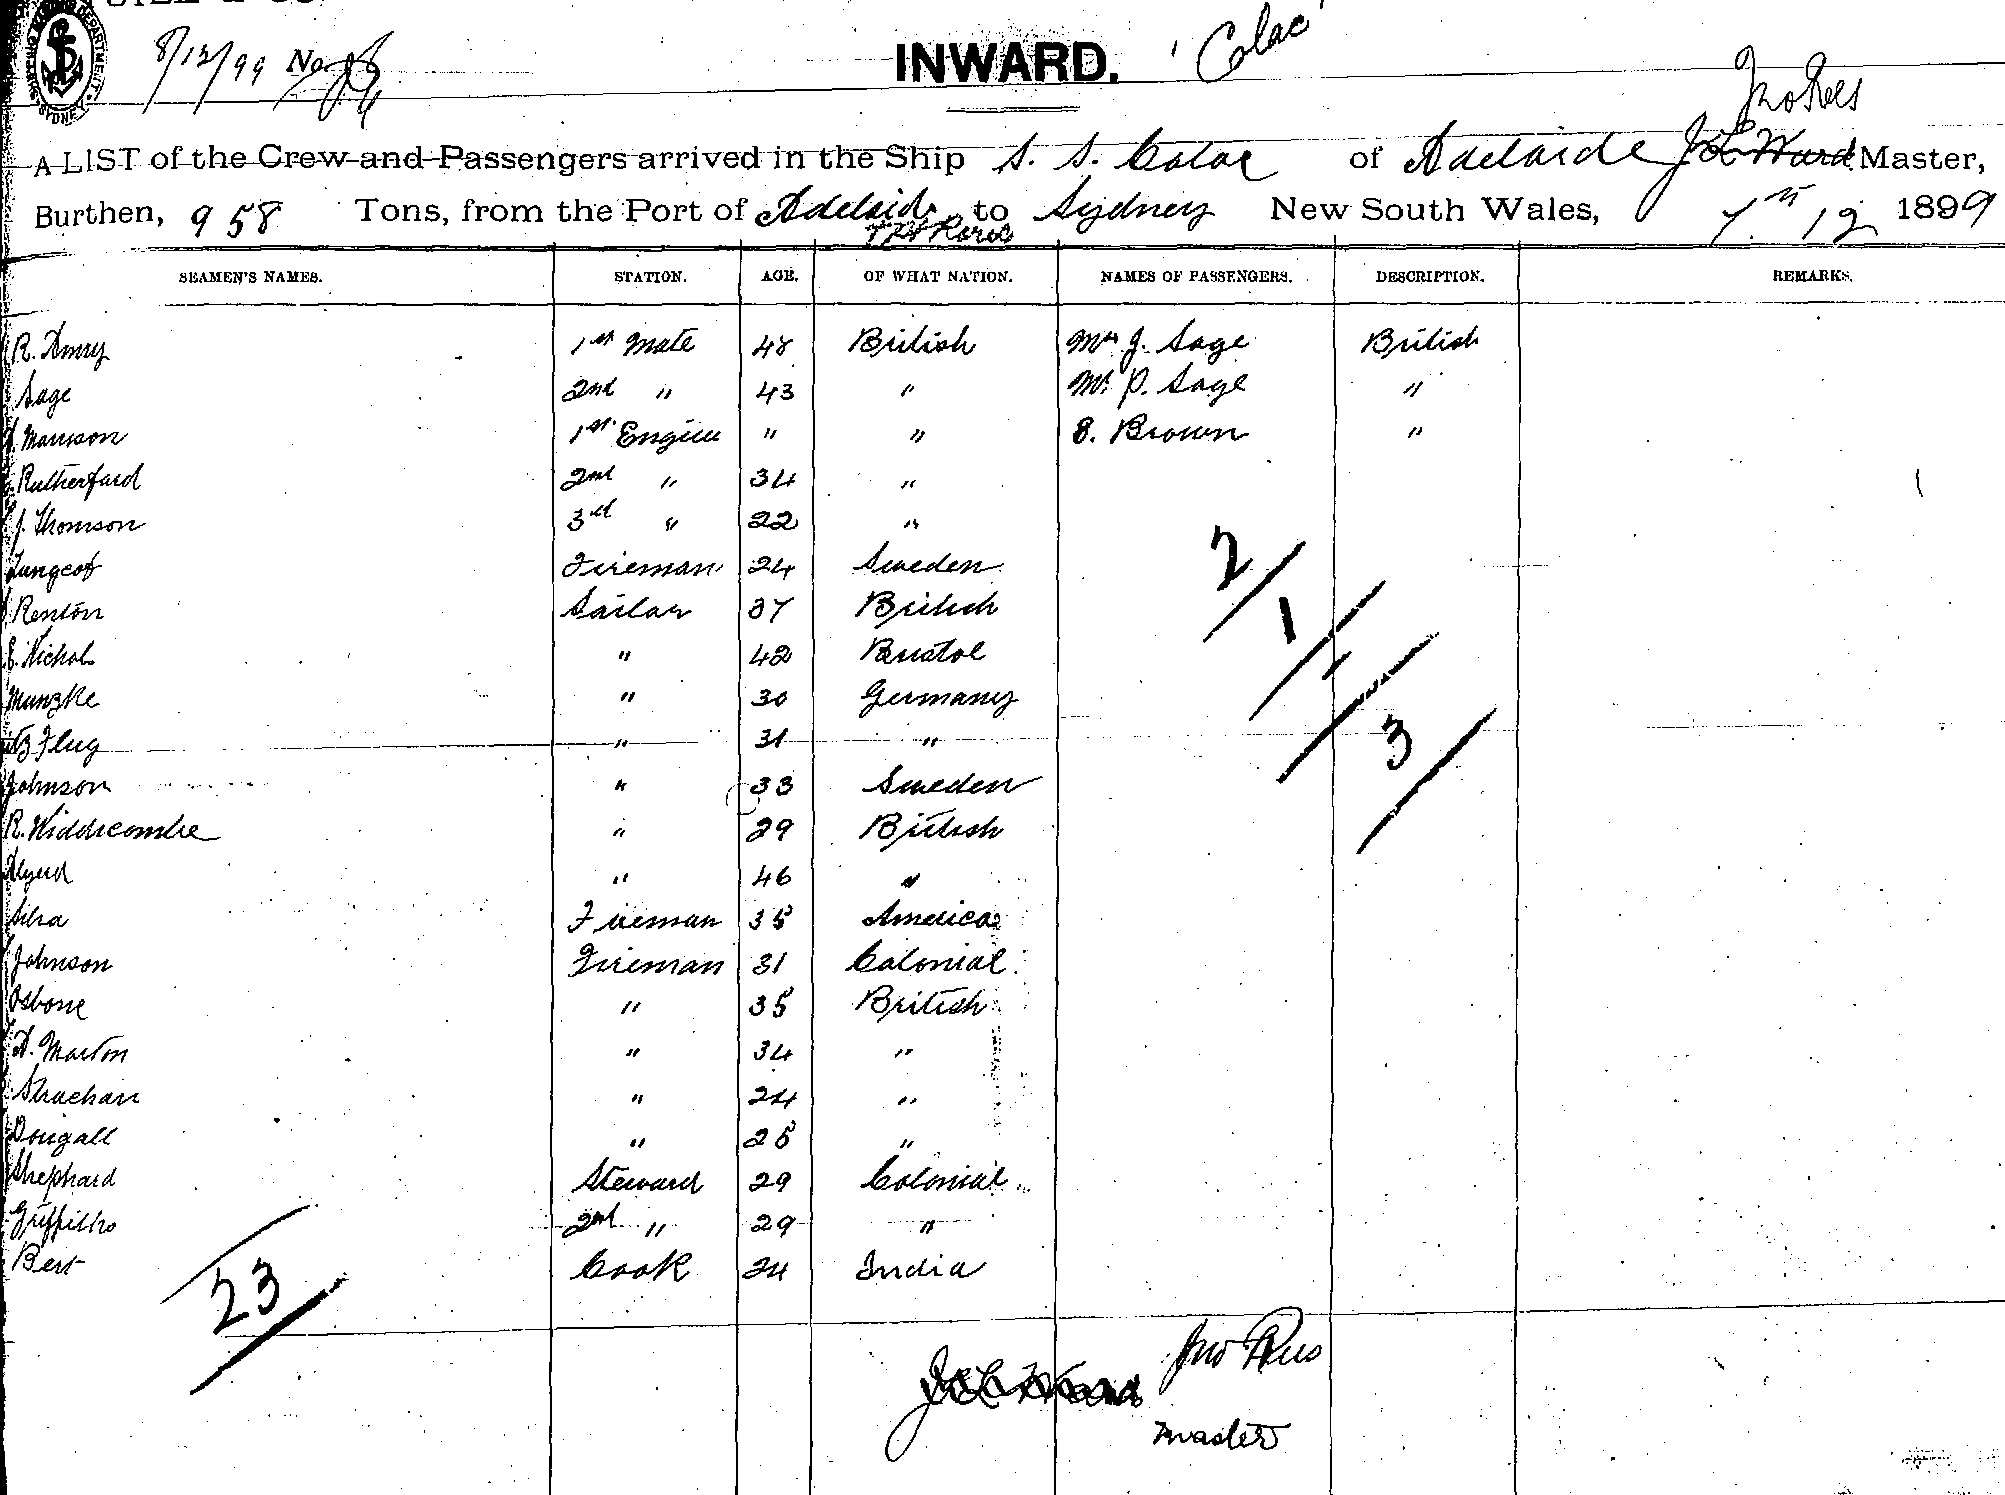 8/12/99 No
INWARD. 'Colac'
Jno Rees
A LIST of the Crew and Passengers arrived in the Ship S. S. Colac of Adelaide Ward Master,
Burthen, 958 Tons, from the Port of Adelaide to Sydney New South Wales, 7th 12 1899
SEAMEN'S NAMES. STATION. AGE. OF WHAT NATION. NAMES OF PASSENGERS. DESCRIPTION. REMARKS.
1st Mate 48 British Mrs J. Sage British
Sage 2nd " 43 " Mr P. Sage "
1st Engineer " " E. Brown "
Rutherfurd 2nd " 34 "
J. Thomson 3rd " 22 "
Fireman 24 Sweden
Renton Sailor 37 British
E. Nichol " 42 Bristol
Munzke " 30 Germany
Flug " 31 "
Johnson " 33 Sweden
R. Widdicombe " 29 British
" 46 "
Silva Fireman 35 America
Johnson Fireman 31 Colonial
Osbone " 35 British
A. Marton " 34 "
Strachan " 24 "
Dougall " 25 "
Shephard Steward 29 Colonial
Griffiths 2nd " 29 "
Bert Cook 24 India
2/
1/
1/
3/
23
Jno Rees
Master